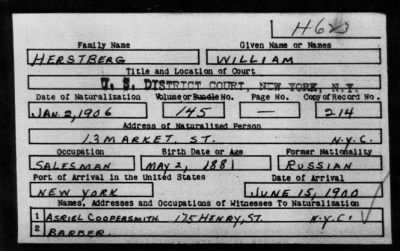 H623
Family Name Given Name or Names
HERSTBERG WILLIAM
Title and Location of Court
U. S. DISTRICT COURT, NEW YORK, N.Y.
Date of Naturalization Volume or Bundle No. Page No. Copy of Record No.
JAN. 2, 1906 145 — 214
Address of Naturalized Person
13 MARKET. ST. N.Y.C.
Occupation Birth Date or Age Former Nationality
SALESMAN MAY 2, 1881 RUSSIAN
Port of Arrival in the United States Date of Arrival
NEW YORK JUNE 15, 1900
Names, Addresses and Occupations of Witnesses To Naturalization
1 ASRIEL COOPERSMITH 175 HENRY, ST. N.Y.C.
2 BARBER.